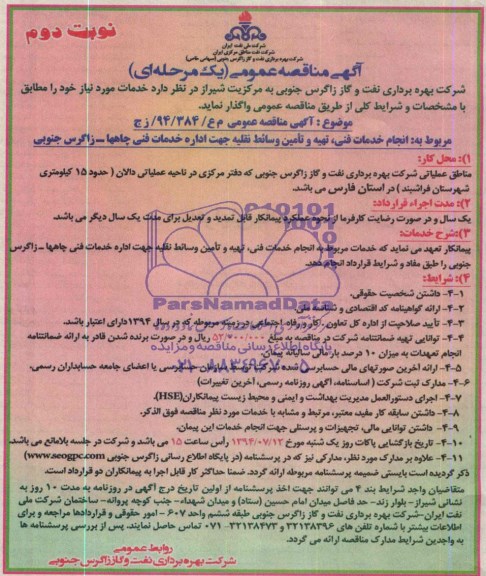 نوبت دوم
شرکت ملی نفت ایران
شرکت نفت مناطق مرکزی ایران
شرکت بهره برداری نفت و گاز زاگرس جنوبی (سهامی خاص)
آگهی مناقصه عمومی (یک مرحله ای)
شرکت بهره برداری نفت و گاز زاگرس جنوبی به مرکزیت شیراز در نظر دارد خدمات مورد نیاز خود را مطابق
با مشخصات و شرایط کلی از طریق مناقصه عمومی واگذار نماید.
موضوع : آگهی مناقصه عمومی م ع/ ۹۴/۳۸۴/ ز ج
مربوط به: انجام خدمات فنی، تهیه و تأمین وسائط نقلیه جهت اداره خدمات فنی چاهها ــ زاگرس جنوبی
۱): محل کار:
مناطق عملیاتی شرکت بهره برداری نفت و گاز زاگرس جنوبی که دفتر مرکزی در ناحیه عملیاتی دالان ( حدود ۱۵ کیلومتری
شهرستان فراشبند ) در استان فارس می باشد.
۲): مدت اجراء قرارداد:
یک سال و در صورت رضایت کارفرما از نحوه عملکرد پیمانکار قابل تمدید و تعدیل برای مدت یک سال دیگر می باشد.
۳):شرح خدمات:
پیمانکار تعهد می نماید که خدمات مربوط به انجام خدمات فنی، تهیه و تأمین وسائط نقلیه جهت اداره خدمات فنی چاهها ــ زاگرس
جنوبی را طبق مفاد و شرایط قرارداد انجام دهد.
۴): شرایط:
۴-۱- داشتن شخصیت حقوقی.
۴-۲- ارائه گواهینامه کد اقتصادی و شناسه ملی.
۴-۳- تأیید صلاحیت از اداره کل تعاون ،کار و رفاه اجتماعی در زمینه مربوطه که در سال ۱۳۹۴دارای اعتبار باشد.
۴-۴- توانایی تهیه ضمانتنامه شرکت در مناقصه به مبلغ ۵۲/۷۰۰/۰۰۰ ریال و در صورت برنده شدن قادر به ارائه ضمانتنامه
انجام تعهدات به میزان ۱۰ درصد بار مالی سالیانه پیمان.
۴-۵- ارائه آخرین صورتهای مالی حسابرسی شده شرکت توسط سازمان حسابرسی یا اعضای جامعه حسابداران رسمی.
۴-۶- مدارک ثبت شرکت ( اساسنامه، آگهی روزنامه رسمی، آخرین تغییرات )
۴-۷- اجرای دستورالعمل مدیریت بهداشت و ایمنی و محیط زیست پیمانکاران(HSE).
۴-۸- داشتن سابقه کار مفید، معتبر، مرتبط و مشابه با خدمات مورد نظر مناقصه فوق الذکر.
۴-۹- داشتن توانایی مالی، تجهیزات و پرسنلی جهت انجام خدمات این پیمان.
۴-۱۰- تاریخ بازگشایی پاکات روز یک شنبه مورخ ۱۳۹۴/۰۷/۱۲ رأس ساعت ۱۵ می باشد و شرکت در جلسه بلامانع می باشد.
۴-۱۱- علاوه بر مدارک مورد نظر، مدارکی نیز که در پرسشنامه (در پایگاه اطلاع رسانی زاگرس جنوبی www.seogpc.com)
ذکر گردیده است بایستی ضمیمه پرسشنامه مربوطه ارائه گردد. ضمنا حداکثر کار قابل اجرا به پیمانکاران دو قرارداد است.
متقاضیان واجد شرایط بند ۴ می توانند جهت اخذ پرسشنامه از اولین تاریخ درج آگهی در روزنامه به مدت ۱۰ روز به
نشانی شیراز- بلوار زند- حد فاصل میدان امام حسین (ستاد) و میدان شهداء- جنب کوچه پروانه- ساختمان شرکت ملی
نفت ایران-شرکت بهره برداری نفت و گاز زاگرس جنوبی طبقه ششم واحد ۶۰۷ - امور حقوقی و قراردادها مراجعه و برای
اطلاعات بیشتر با شماره تلفن های ۳۲۱۳۸۳۹۶ و ۳۲۱۳۸۴۷۳-۰۷۱ تماس حاصل نمایند. پس از بررسی پرسشنامه ها
به واجدین شرایط مدارک مناقصه ارائه می گردد.
روابط عمومی
شرکت بهره برداری نفت و گاز زاگرس جنوبی
ParsNamadData
پایگاه اطلاع رسانی مناقصه و مزایده